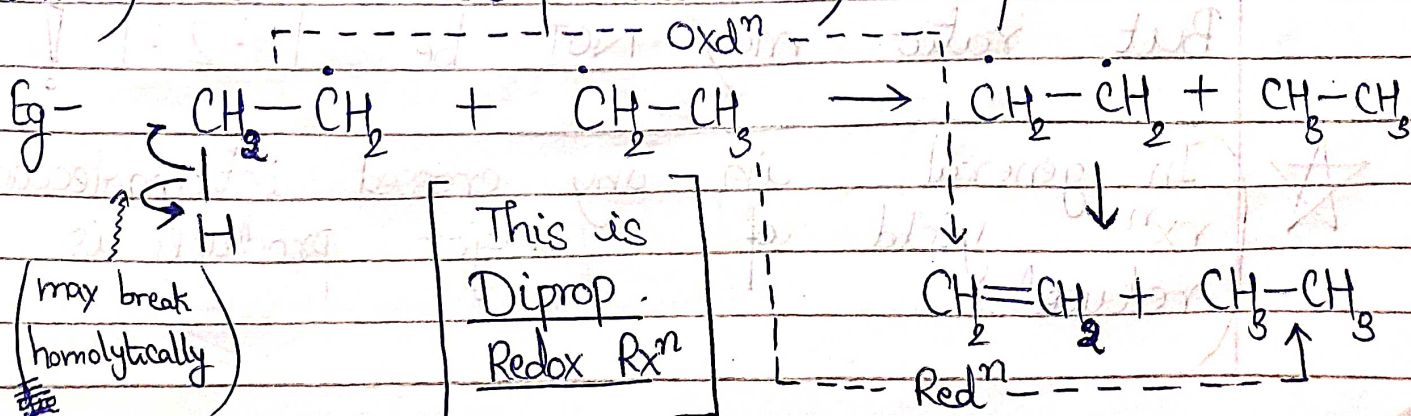 Oxdⁿ
Eg- CH₂-ĊH₂ + ĊH₂-CH₃ → ĊH₂-ĊH₂ + CH₃-CH₃
H
(may break
homolytically)
[This is
Diprop.
Redox Rxⁿ]
CH₂=CH₂ + CH₃-CH₃
Redⁿ